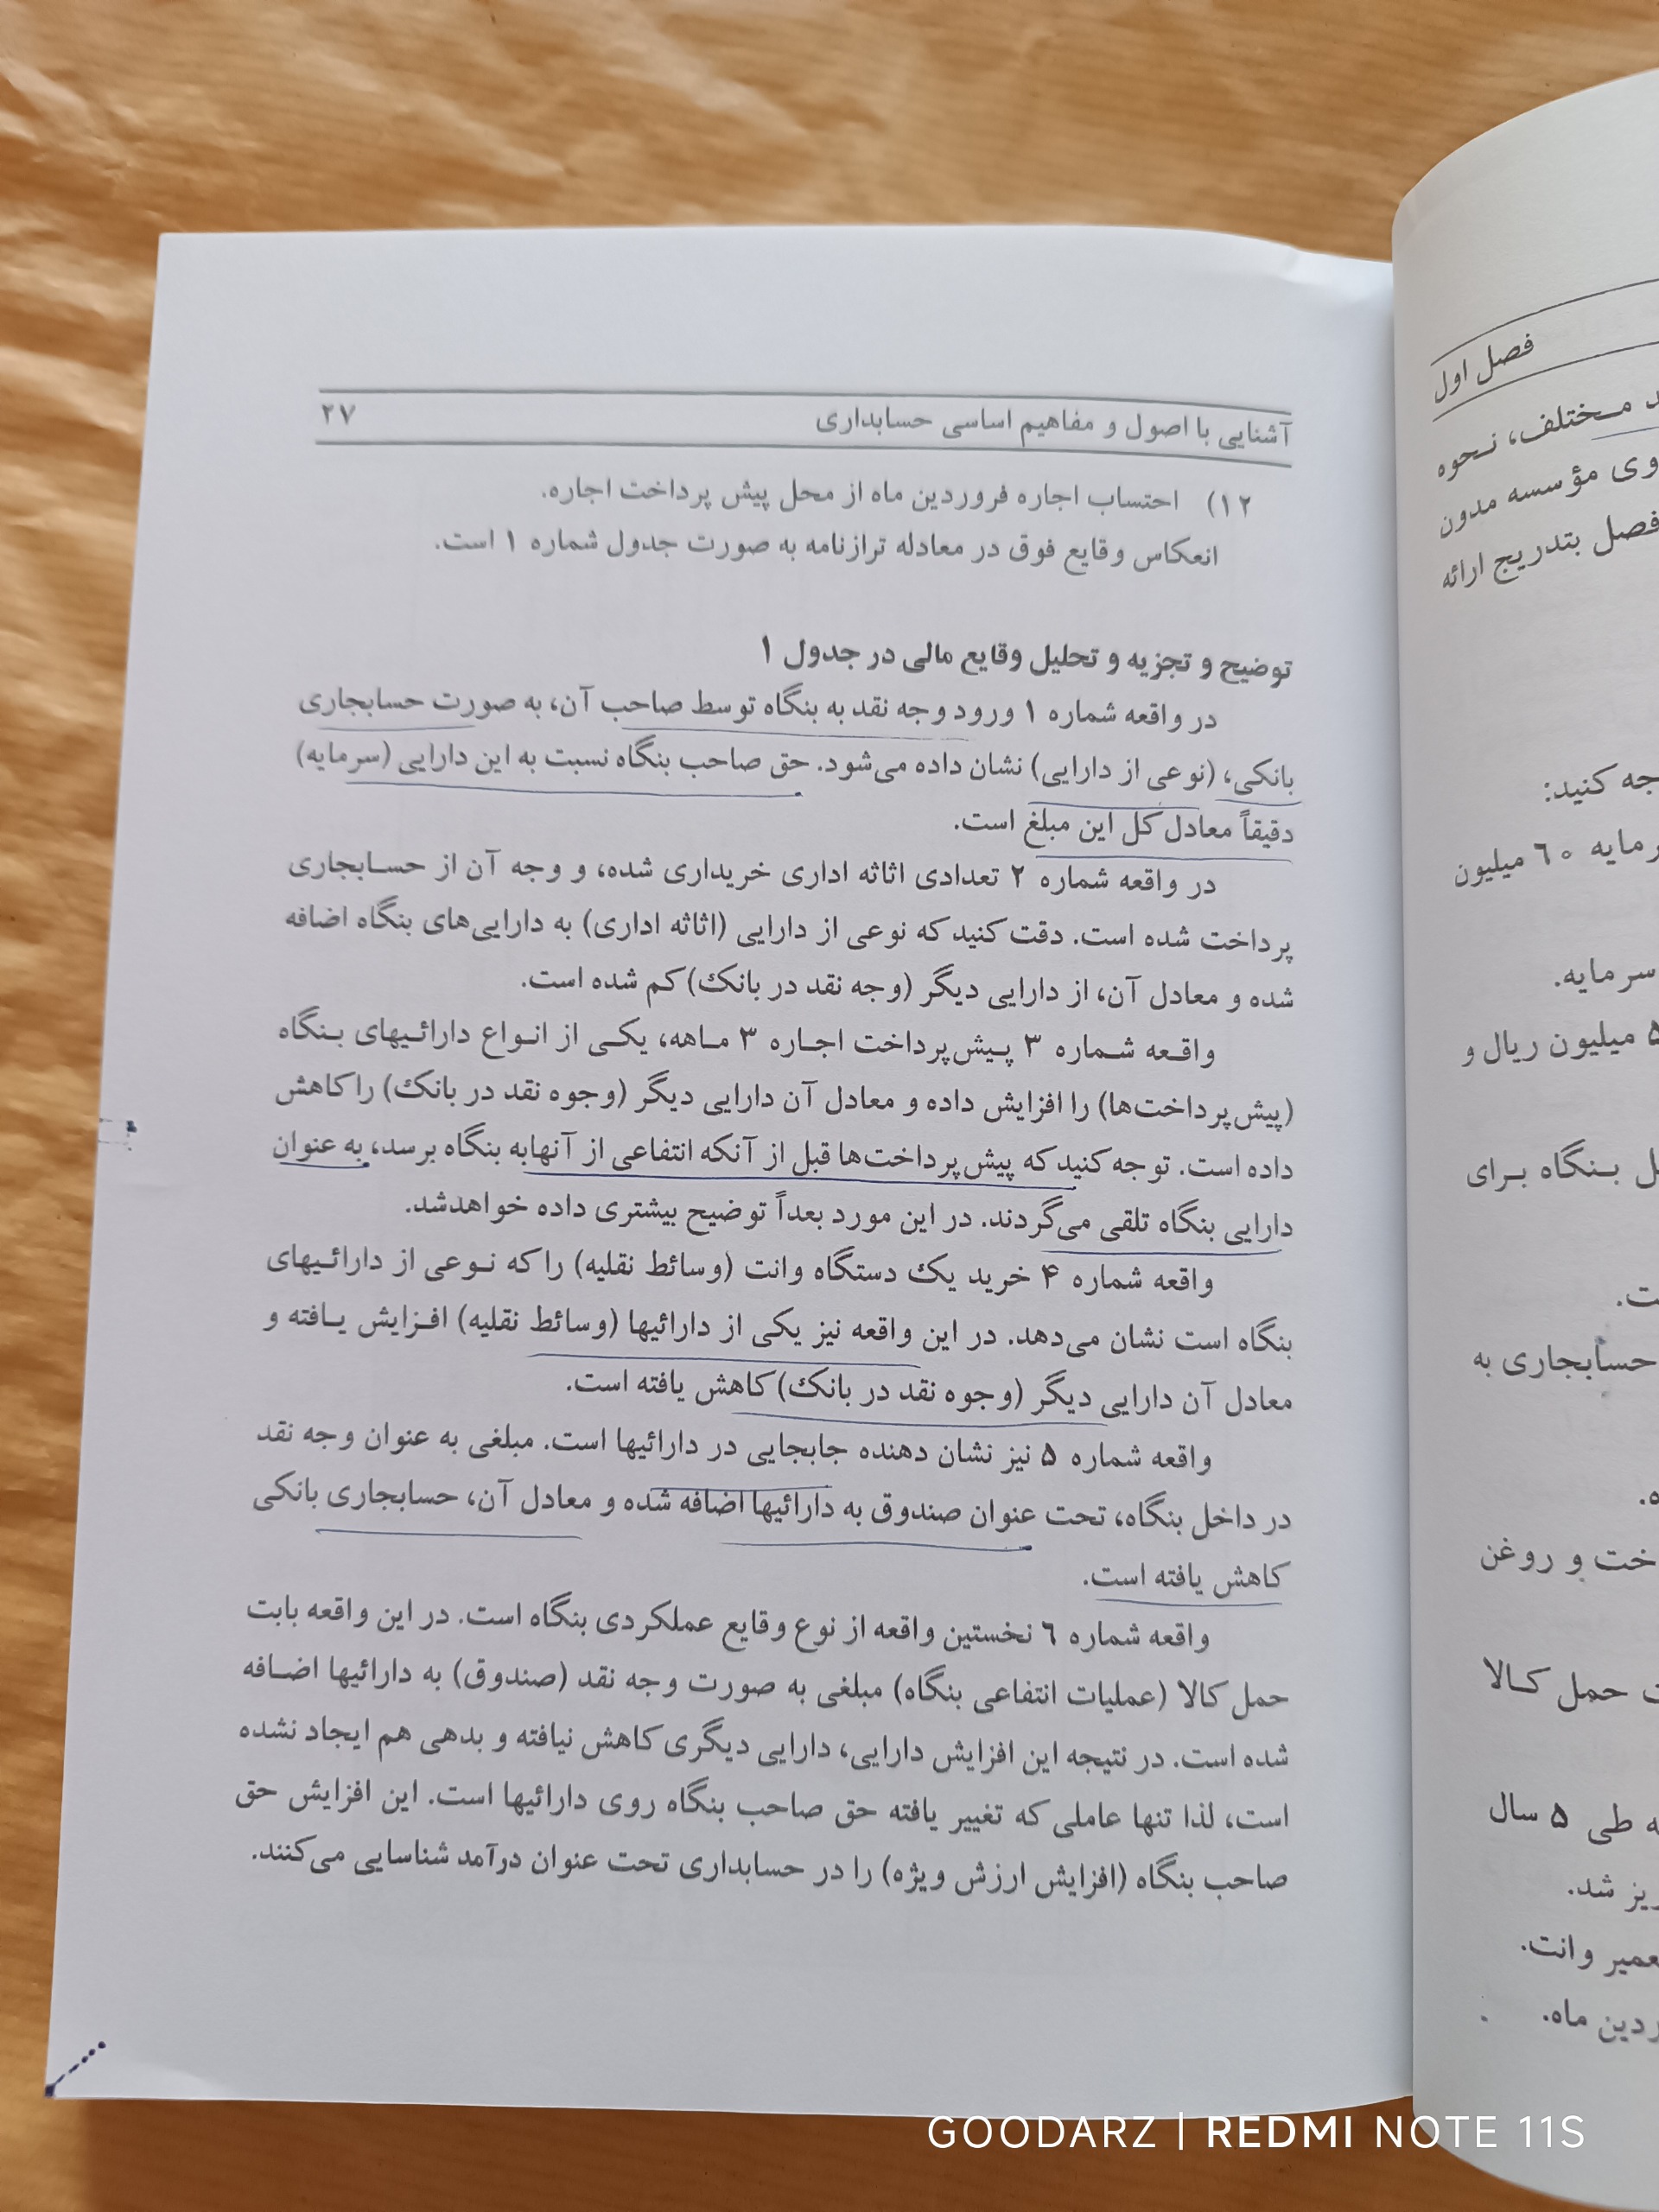 آشنایی با اصول و مفاهیم اساسی حسابداری ۲۷
۱۲) احتساب اجاره فروردین ماه از محل پیش پرداخت اجاره.
انعکاس وقایع فوق در معادله ترازنامه به صورت جدول شماره ۱ است.
توضیح و تجزیه و تحلیل وقایع مالی در جدول ۱
در واقعه شماره ۱ ورود وجه نقد به بنگاه توسط صاحب آن، به صورت حسابجاری
بانکی، (نوعی از دارایی) نشان داده می‌شود. حق صاحب بنگاه نسبت به این دارایی (سرمایه)
دقیقاً معادل کل این مبلغ است.
در واقعه شماره ۲ تعدادی اثاثه اداری خریداری شده، و وجه آن از حسابجاری
پرداخت شده است. دقت کنید که نوعی از دارایی (اثاثه اداری) به دارایی‌های بنگاه اضافه
شده و معادل آن، از دارایی دیگر (وجه نقد در بانک) کم شده است.
واقعه شماره ۳ پیش‌پرداخت اجاره ۳ ماهه، یکی از انواع دارائیهای بنگاه
(پیش‌پرداخت‌ها) را افزایش داده و معادل آن دارایی دیگر (وجوه نقد در بانک) را کاهش
داده است. توجه کنید که پیش‌پرداخت‌ها قبل از آنکه انتفاعی از آنها به بنگاه برسد، به عنوان
دارایی بنگاه تلقی می‌گردند. در این مورد بعداً توضیح بیشتری داده خواهد شد.
واقعه شماره ۴ خرید یک دستگاه وانت (وسائط نقلیه) را که نوعی از دارائیهای
بنگاه است نشان می‌دهد. در این واقعه نیز یکی از دارائیها (وسائط نقلیه) افزایش یافته و
معادل آن دارایی دیگر (وجوه نقد در بانک) کاهش یافته است.
واقعه شماره ۵ نیز نشان دهنده جابجایی در دارائیها است. مبلغی به عنوان وجه نقد
در داخل بنگاه، تحت عنوان صندوق به دارائیها اضافه شده و معادل آن، حسابجاری بانکی
کاهش یافته است.
واقعه شماره ۶ نخستین واقعه از نوع وقایع عملکردی بنگاه است. در این واقعه بابت
حمل کالا (عملیات انتفاعی بنگاه) مبلغی به صورت وجه نقد (صندوق) به دارائیها اضافه
شده است. در نتیجه این افزایش دارایی، دارایی دیگری کاهش نیافته و بدهی هم ایجاد نشده
است، لذا تنها عاملی که تغییر یافته حق صاحب بنگاه روی دارائیها است. این افزایش حق
صاحب بنگاه (افزایش ارزش ویژه) را در حسابداری تحت عنوان درآمد شناسایی می‌کنند.
فصل اول
مختلف، نحوه
وی مؤسسه مدون
فصل بتدریج ارائه
جه کنید:
رمایه ۶۰ میلیون
سرمایه.
۵ میلیون ریال و
ل بنگاه برای
ت.
حسابجاری به
ه.
خت و روغن
ت حمل کالا
ه طی ۵ سال
ریز شد.
عمیر وانت.
ردین ماه.
GOODARZ | REDMI NOTE 11S